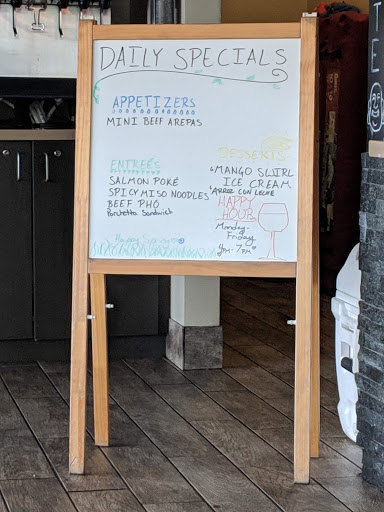 DAILY SPECIALS
APPETIZERS
MINI BEEF AREPAS
ENTREÉS
SALMON POKÉ
SPICY MISO NOODLES
BEEF PHO
Porchetta Sandwich
DESSERTS
MANGO SWIRL
ICE CREAM
*ARROZ CON LECHE
HAPPY
HOUR
Monday-
Friday
4PM-7PM
Happy Spring